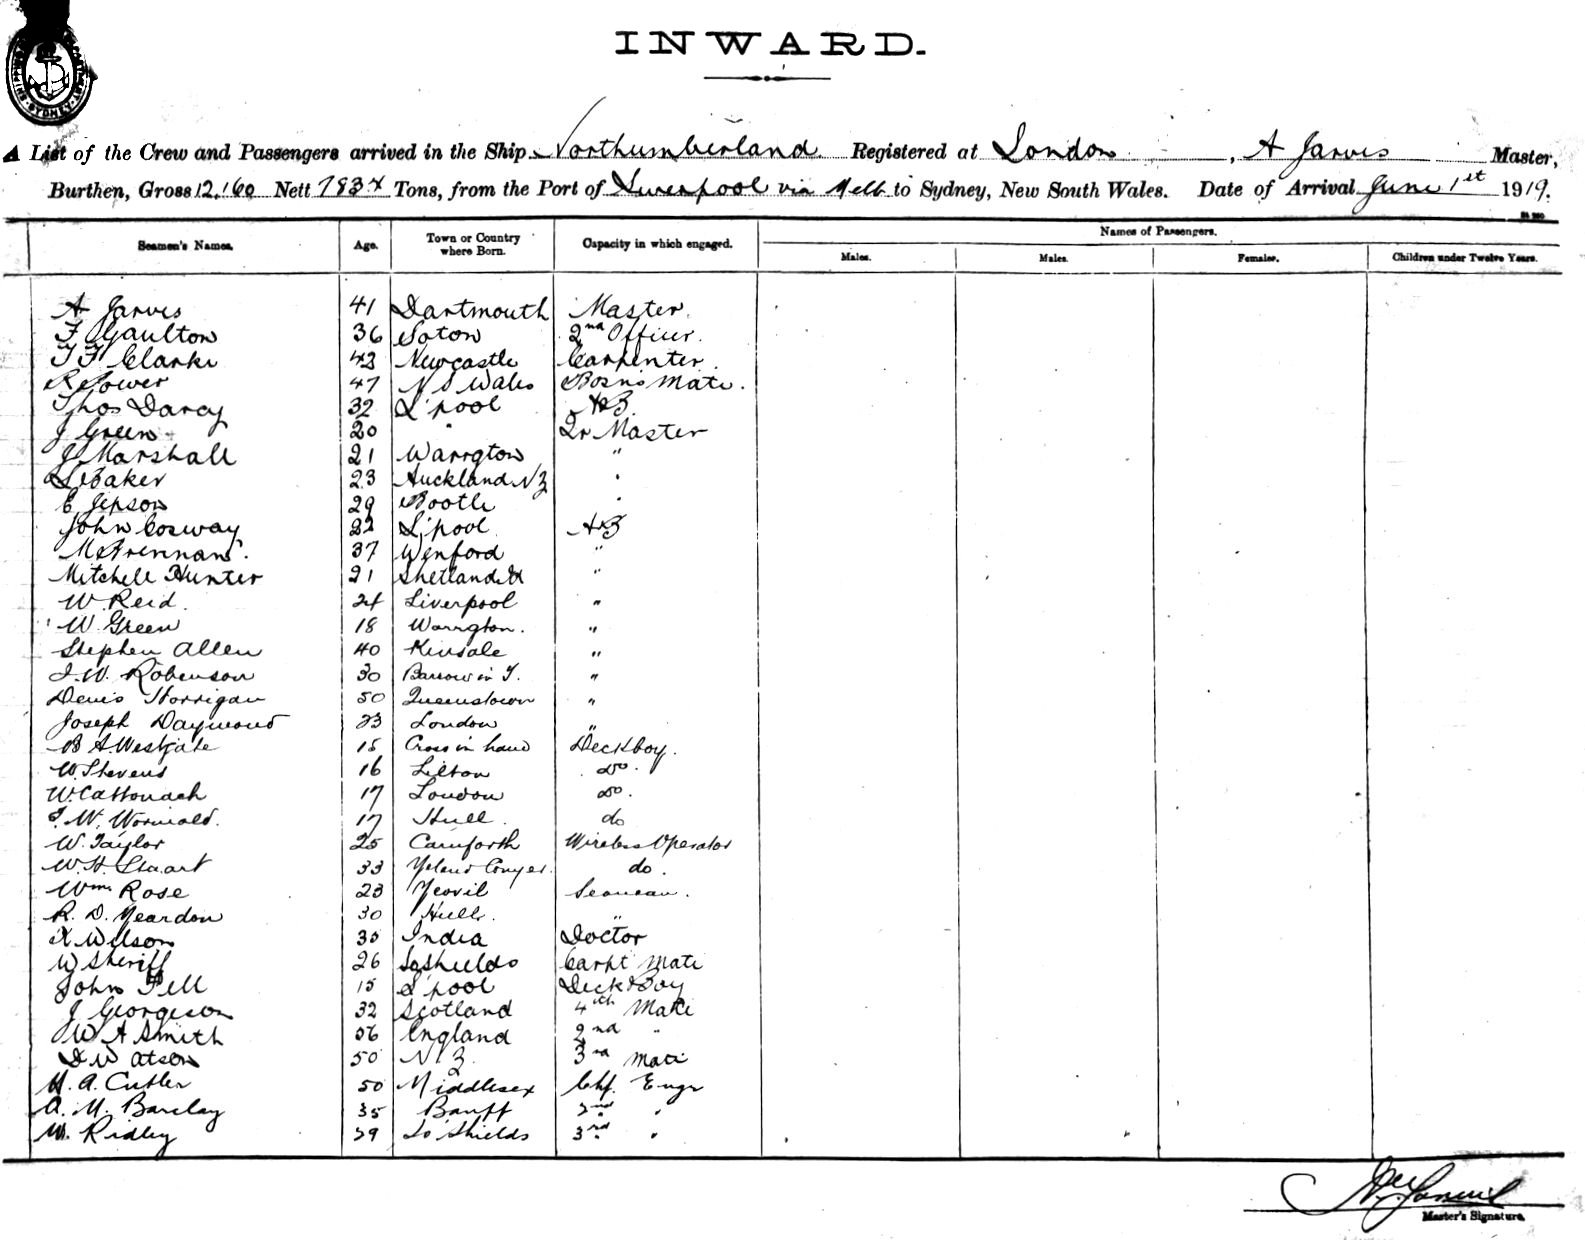 INWARD.
A List of the Crew and Passengers arrived in the Ship Northumberland Registered at London, A Jarvis Master,
Burthen, Gross 12,160 Nett 7834 Tons, from the Port of Liverpool via Melb to Sydney, New South Wales. Date of Arrival June 1st 1919.
Names of Passengers.
Seamen's Names. Age. Town or Country where Born. Capacity in which engaged. Males. Males. Females. Children under Twelve Years.
A Jarvis 41 Dartmouth Master.
F Gaulton 36 Soton 2nd Officer.
T F Clarke 43 Newcastle Carpenter.
R Power 47 N S Wales Bosns Mate.
Thos Darcy 32 L'pool AB.
J Green 20 " Qr Master
J Marshall 21 Warrgton "
L Baker 23 Auckland NZ "
E Jepson 29 Bootle "
John Cosway 22 L'pool AB
M Brennan. 37 Wexford "
Mitchell Hunter 21 Shetland "
W. Reid. 24 Liverpool "
W. Green 18 Warrgton. "
Stephen Allen 40 Kinsale "
J. W. Robenson 30 Barrow in F. "
Denis Horrigan 50 Queenstown "
Joseph Daymond 23 London "
B A. Westgate 15 Cross in hand Deckboy.
W. Stevens 16 do.
W. Cattonach 17 London do.
J. W. Wormald. 17 Hull. do
W. Taylor 25 Carnforth Wireless Operator
W. H. Stuart 33 Yeland Conyers. do.
Wm. Rose 23 Yeovil Seaman.
R. D. Yeardon 30 Hull. "
A Wilson 30 India Doctor
W Sheriff 26 So Shields Carpt Mate
John Fell 15 L'pool Deck Boy
J Georgeson 32 Scotland 4th Mate
W A Smith 56 England 2nd "
D Watson 50 N Z 3rd Mate
H. A. Cutler 50 Middlesex Chf. Engr
A. M. Barclay 35 Banff 2nd. "
M. Ridley 29 So Shields 3rd. "
Master's Signature.